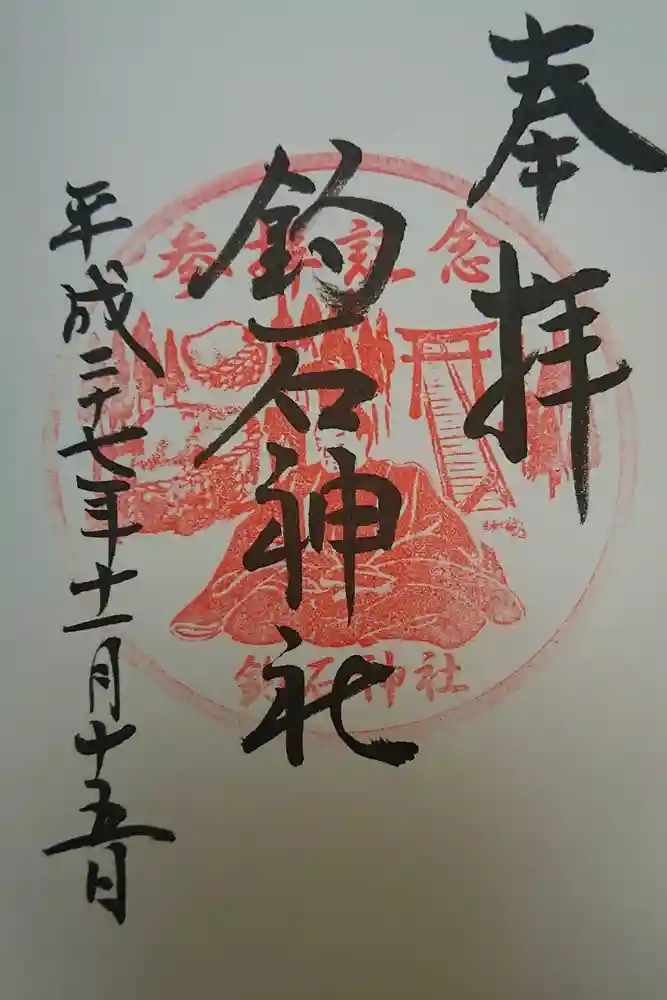 奉拝
釣石神社
平成二十七年十一月十五日
参拝記念
釣石神社